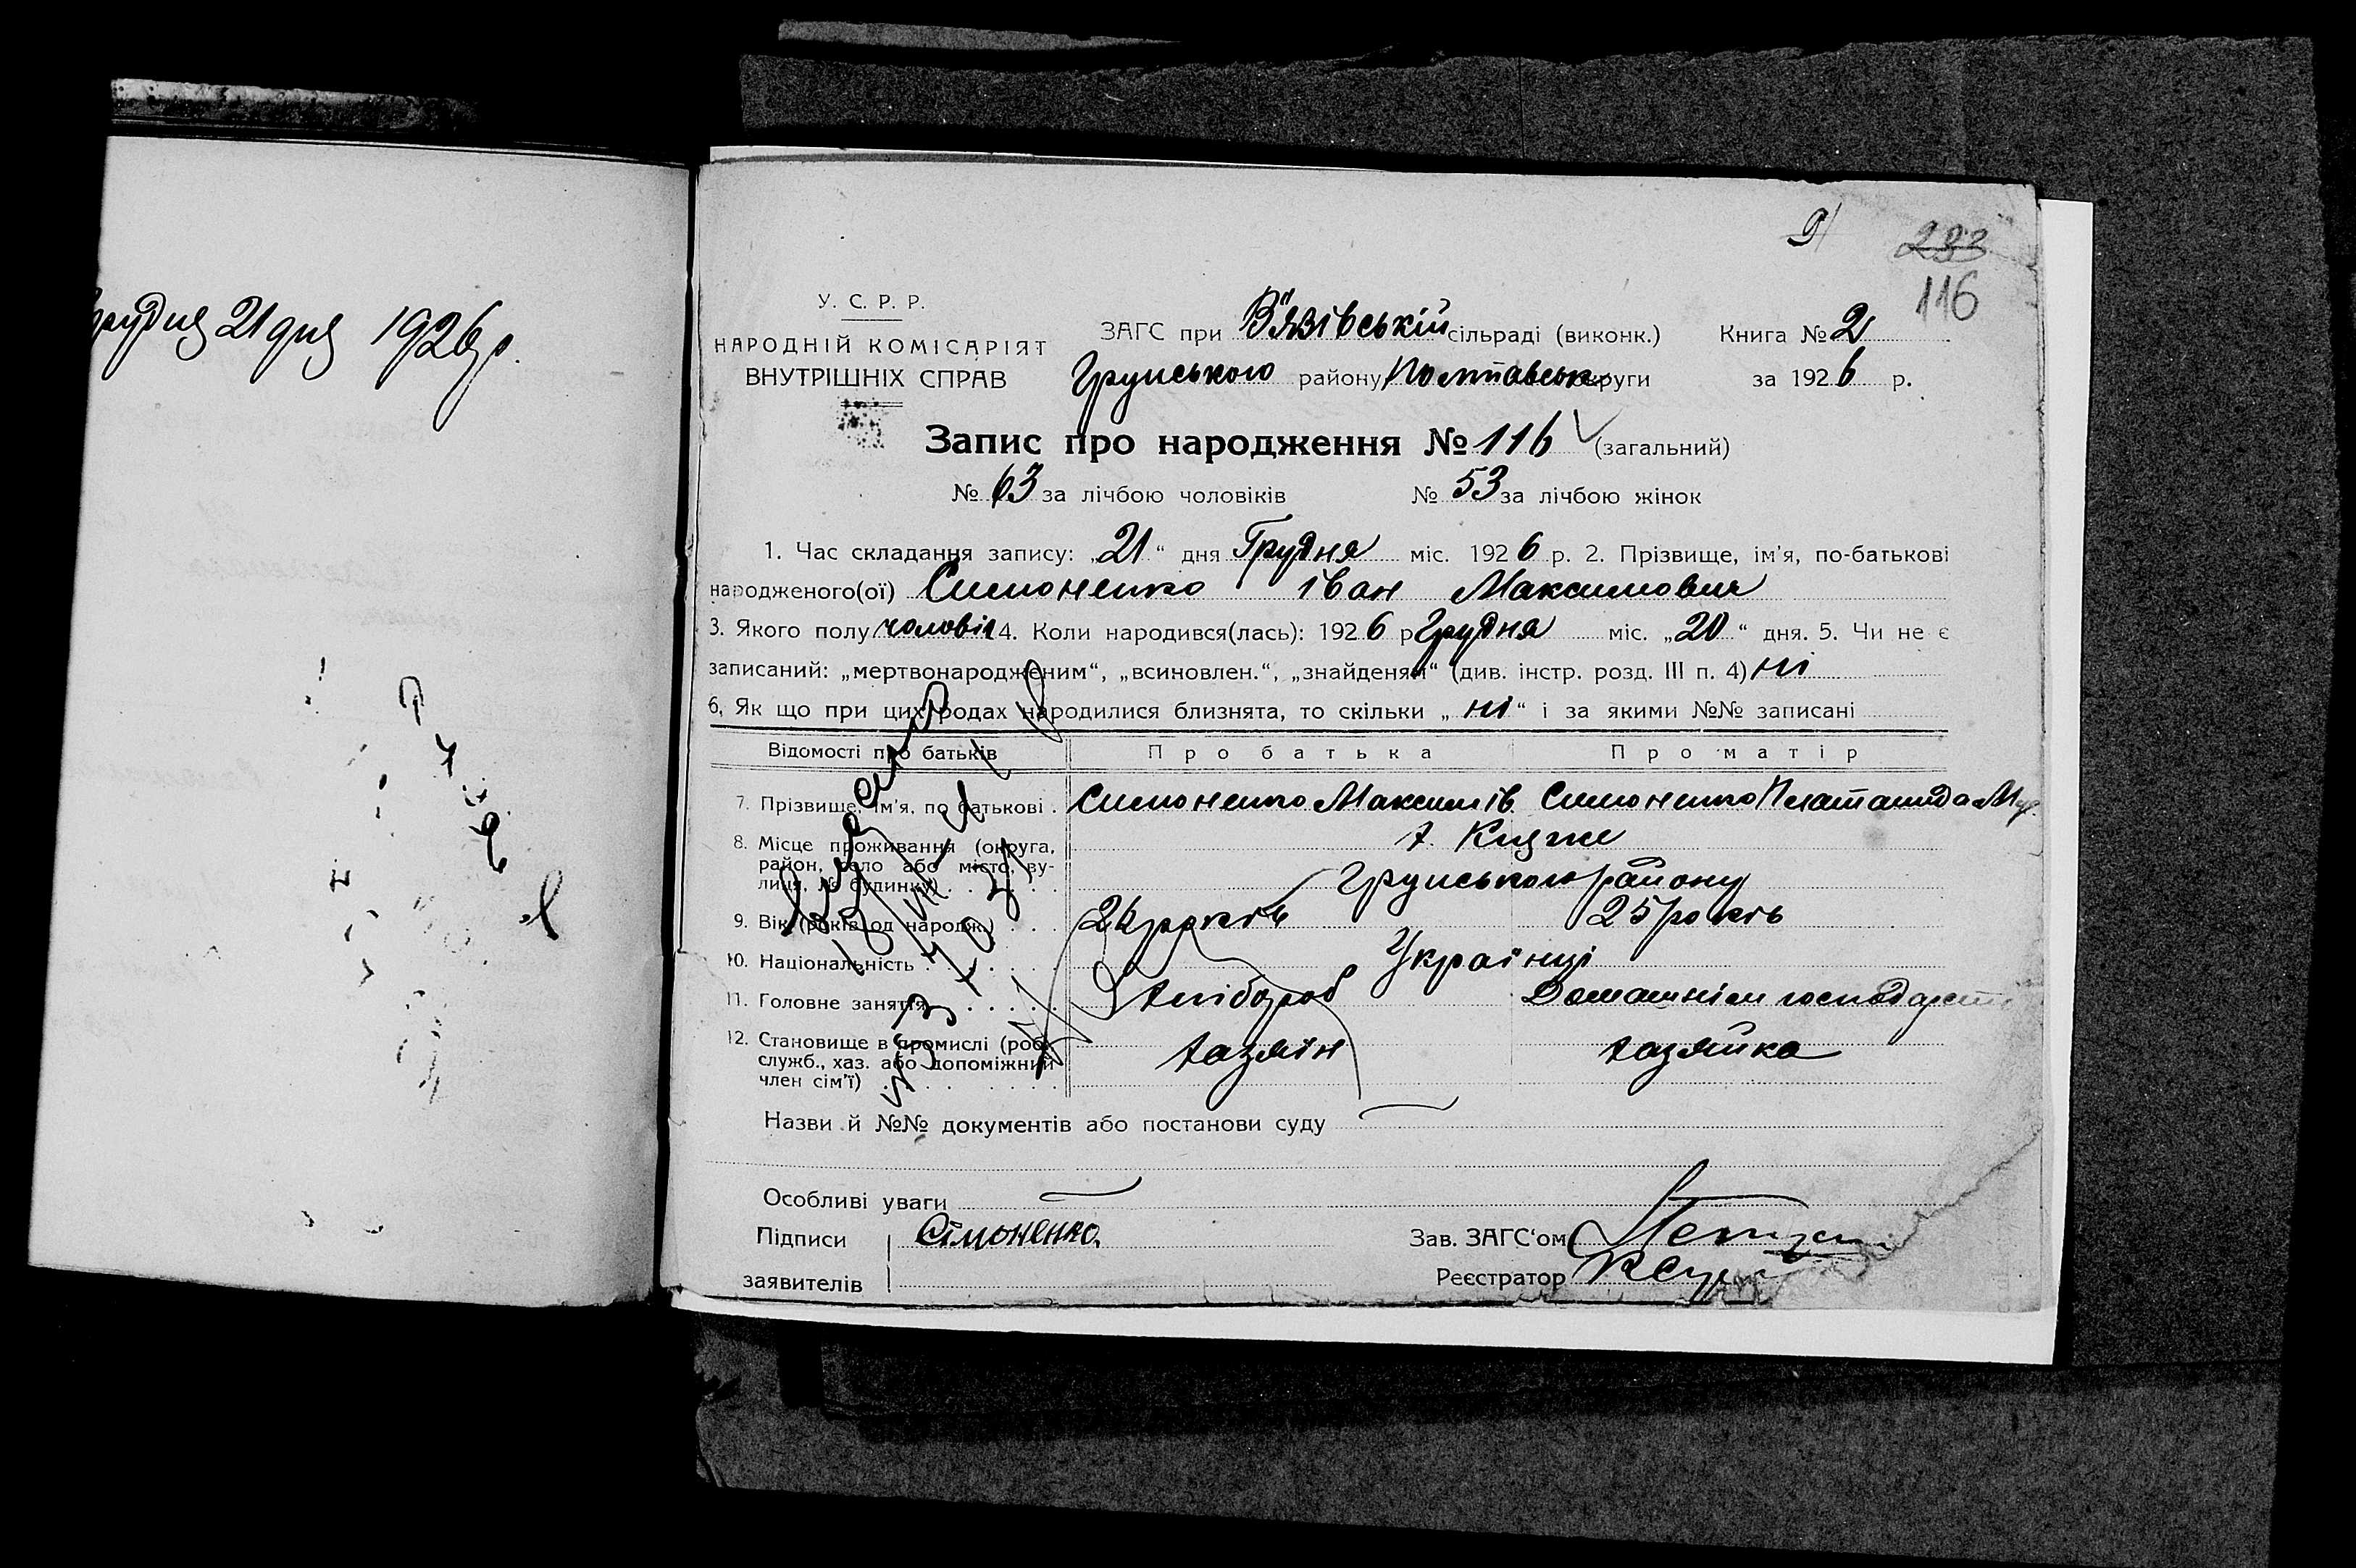 грудня 21 дня 1926 р.
9
233
116
У. С. Р. Р.
НАРОДНІЙ КОМІСАРІЯТ
ВНУТРІШНІХ СПРАВ
ЗАГС при В'язівській сільраді (виконк.) Книга № 2
Грунського району, Полтавськ округи за 1926 р.
Запис про народження № 116 (загальний)
№ 63 за лічбою чоловіків № 53 за лічбою жінок
1. Час складання запису: „21“ дня Грудня міс. 1926 р. 2. Прізвище, ім'я, по-батькові
народженого(ої) Симоненко Іван Максимович
3. Якого полу чоловіч 4. Коли народився(лась): 1926 р Грудня міс. „20“ дня. 5. Чи не є
записаний: „мертвонародженим“, „всиновлен.“, „знайденям“ (див. інстр. розд. III п. 4) ні
6, Як що при цих родах народилися близнята, то скільки „ні“ і за якими №№ записані
Відомості про батьків Про батька Про матір
7. Прізвище, ім'я, по батькові . Симоненко Максим Ів. Симоненко
8. Місце проживання (округа, х. Княже
район, село або місто, ву-
лиця, № будинку) . . . Грунського району
9. Вік (років од народж.) . . . 26 років 25 років
10. Національність . . . . . . Українці
11. Головне заняття . . . . . Хлібороб Домашнім господарст
12. Становище в промислі (роб.,
служб., хаз. або допоміжний хазяїн хазяйка
член сім'ї) . . . . . . . .
Назви й №№ документів або постанови суду
Особливі уваги
Підписи Сімоненко. Зав. ЗАГС'ом
заявителів Реєстратор